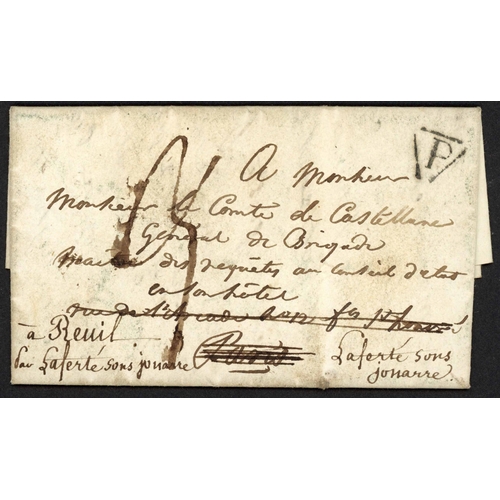 P
A Monsieur
Monsieur le Comte de Castellane
Général de Brigade
maitre des requêtes au conseil d'etat
en son hôtel
rue de l'arcade fg
Paris
à Reuil
par Laferté sous jouarre
Laferté sous
jouarre